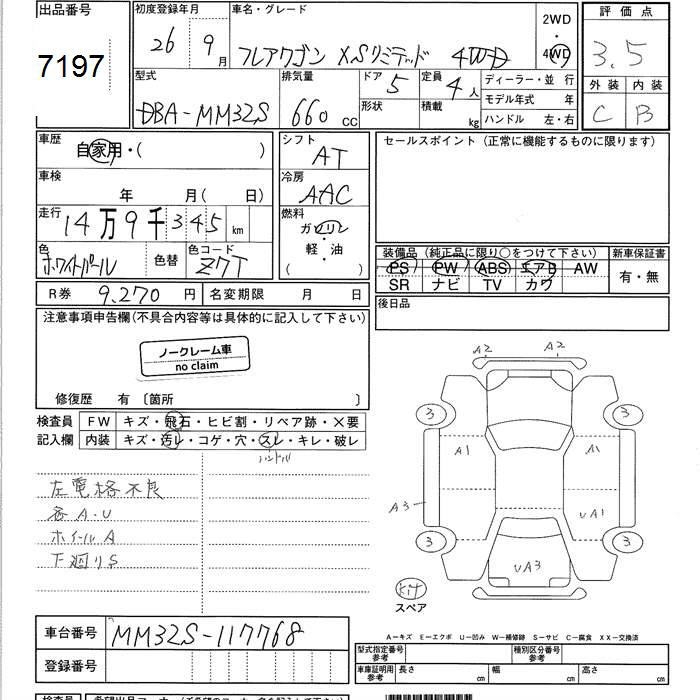 出品番号
7197
初度登録年月
26 9月
車名・グレード
フレアワゴン XSリミテッド 4WD
2WD
4WD
評価点
3.5
外装 内装
C B
型式
DBA-MM32S
排気量
660 cc
ドア 5
形状
定員 4人
積載 kg
ディーラー・並 行
モデル年式 年
ハンドル 左・右
車歴
自家用・( )
車検
年 月( 日)
走行
14万9千345 km
色
ホワイトパール
色替
色コード
Z7T
シフト
AT
冷房
AAC
燃料
ガソリン
軽・油
( )
セールスポイント (正常に機能するものに限ります)
装備品 (純正品に限り○をつけて下さい)
PS PW ABS エアB AW
SR ナビ TV カワ
新車保証書
有・無
後日品
R券 9,270 円
名変期限 月 日
注意事項申告欄(不具合内容等は具体的に記入して下さい)
ノークレーム車
no claim
修復歴 有 〔箇所 〕
検査員
記入欄
FW キズ・飛石・ヒビ割・リペア跡・×要
内装 キズ・汚レ・コゲ・穴・スレ・キレ・破レ
ハンドル
左電格不良
各A.U
ホイールA
下廻りS
A2 A2
3 3
A1 A1
A3
UA1
3 3
UA3
kit
スペア
車台番号 MM32S-117768
登録番号
A-キズ E-エクボ U-凹み W-補修跡 S-サビ C-腐食 XX-交換済
型式指定番号
参考
種別区分番号
参考
車庫証明用
参考
長さ cm 幅 cm 高さ cm